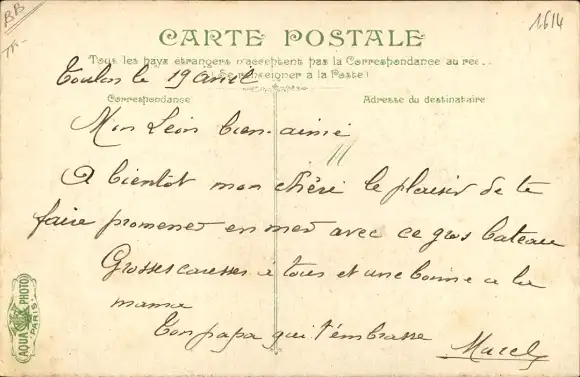 BB
TR-
1614
CARTE POSTALE
Tous les pays étrangers n'acceptent pas la Correspondance au rec...
(Se renseigner à la Poste)
Toulon le 19 avril
Correspondance
Adresse du destinataire
Mon Léon bien-aimé
A bientôt mon chéri le plaisir de te
faire promener en mer avec ce gros bateau
Grosses caresses à tous et une bonne a la
mama
Ton papa qui t'embrasse
Marcel
AQUA PHOTO
PARIS